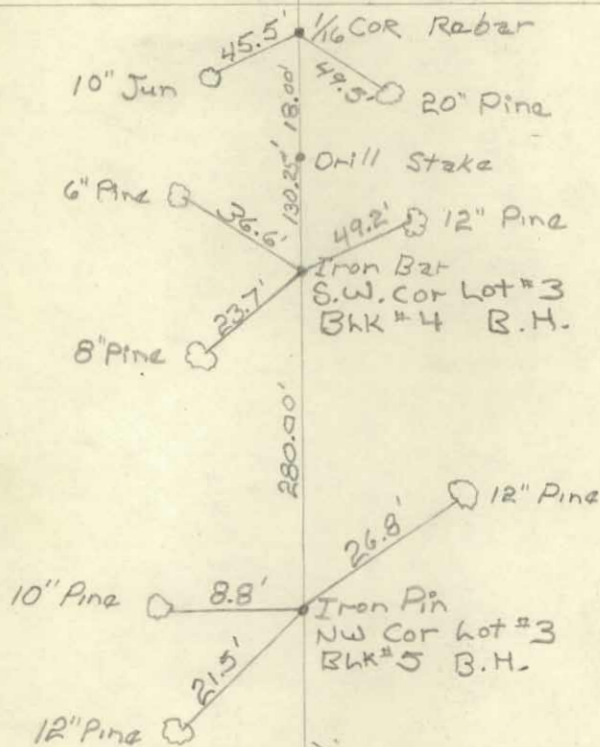 45.5'
1/16 COR Rebar
10" Jun
18.00'
49.5'
20" Pine
Drill Stake
6" Pine
130.25'
36.6'
49.2'
12" Pine
Iron Bar
S.W. Cor Lot #3
Blk #4 B.H.
23.7'
8" Pine
280.00'
12" Pine
26.8'
10" Pine
8.8'
Iron Pin
NW Cor Lot #3
Blk #5 B.H.
21.5'
12" Pine